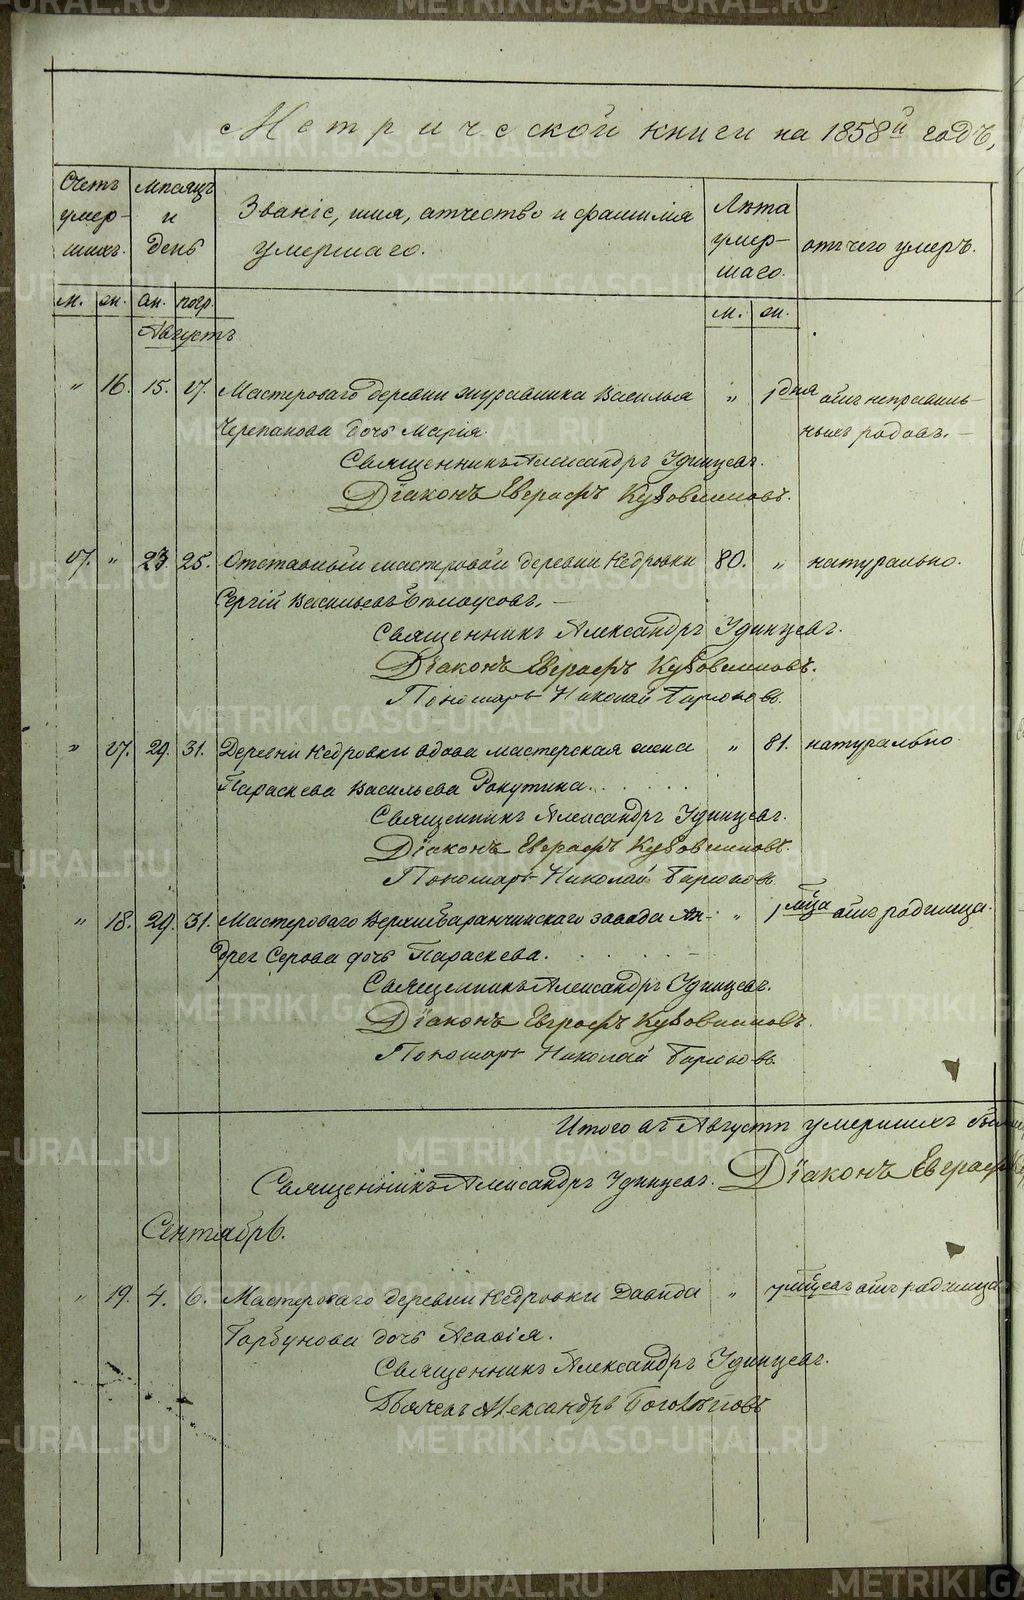 Метрической книги на 1858й годъ,
Счетъ умершихъ.
Мѣсяцъ и день
Званіе, имя, отчество и фамилія умершаго.
Лѣта умершаго.
отъ чего умеръ.
м. ж. см. погр. м. ж.
Августъ
" 16. 15. 17. Мастероваго деревни Журавлика Василья " 1 дня отъ неправиль-
Черепанова дочь Марія. ныхъ родовъ.
Священникъ Александръ Удинцевъ.
Діаконъ Евграфъ Кубовшиновъ.
17. " 23. 25. Отставный мастеровой деревни Кедровки 80. " натурально.
Сергій Васильевъ Бѣлоусовъ.
Священникъ Александръ Удинцевъ.
Діаконъ Евграфъ Кубовшиновъ.
Пономарь Николай
" 17. 29. 31. Деревни Кедровки вдова мастерская жена " 81. натурально
Параскева Васильева
Священникъ Александръ Удинцевъ.
Діаконъ Евграфъ Кубовшиновъ.
Пономарь Николай
" 18. 29. 31. Мастероваго Верхнебаранчинскаго завода Ан- " 1 мѣ́ца отъ родимца.
дрея Серова дочь Параскева.
Священникъ Александръ Удинцевъ.
Діаконъ Евграфъ Кубовшиновъ.
Пономарь Николай
Итого въ Августѣ умершихъ
Священникъ Александръ Удинцевъ. Діаконъ Евграфъ
Сентябрь.
" 19. 4. 6. Мастероваго деревни Кедровки Давида " отъ родимца
Горбунова дочь
Священникъ Александръ Удинцевъ.
Дьячекъ Александръ Боголѣповъ
METRIKI.GASO-URAL.RU